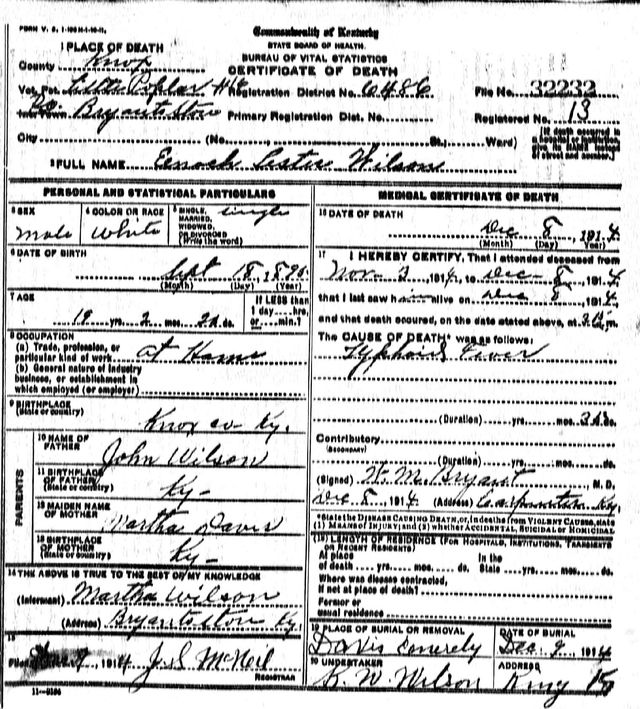 FORM V. S. 1-
Commonwealth of Kentucky
STATE BOARD OF HEALTH.
BUREAU OF VITAL STATISTICS
CERTIFICATE OF DEATH
1 PLACE OF DEATH
County Knox
Vot. Pct. Little Poplar Registration District No. 6486 File No. 32232
Inc. Town Bryantstore Primary Registration Dist. No. Registered No. 13
City (No., St.; Ward) [If death occurred in a hospital or institution, give its NAME instead of street and number.]
2 FULL NAME Eenoch Lester Wilson
PERSONAL AND STATISTICAL PARTICULARS
3 SEX male
4 COLOR OR RACE White
5 SINGLE, MARRIED, WIDOWED, OR DIVORCED (Write the word) single
6 DATE OF BIRTH
Sept 18, 1895
(Month) (Day) (Year)
7 AGE If LESS than 1 day....hrs. or....min.?
19 yrs. 2 mos. 20 ds.
8 OCCUPATION
(a) Trade, profession, or particular kind of work At Home
(b) General nature of industry business, or establishment in which employed (or employer)
9 BIRTHPLACE
(State or country) Knox co Ky.
PARENTS
10 NAME OF FATHER John Wilson
11 BIRTHPLACE OF FATHER (State or country) Ky-
12 MAIDEN NAME OF MOTHER Martha Davis
13 BIRTHPLACE OF MOTHER (State or country) Ky-
14 THE ABOVE IS TRUE TO THE BEST OF MY KNOWLEDGE
(Informant) Martha Wilson
(Address) Bryantstore Ky.
15
Filed 9, 1914 J.S. McNeil
REGISTRAR
MEDICAL CERTIFICATE OF DEATH
16 DATE OF DEATH
Dec 8, 1914
(Month) (Day) (Year)
17 I HEREBY CERTIFY, That I attended deceased from
Nov 3 1914, to Dec 8, 1914,
that I last saw him alive on Dec 8, 1914,
and that death occured, on the date stated above, at m.
The CAUSE OF DEATH* was as follows:
Typhoid Fever
(Duration) yrs. mos. ds.
Contributory
(SECONDARY)
(Duration) yrs. mos. ds.
(Signed) W. M. Bryant, M. D.
Dec 8, 1914 (Address) Ky.
*State the DISEASE CAUSING DEATH, or, in deaths from VIOLENT CAUSES, state (1) MEANS OF INJURY; and (2) whether ACCIDENTAL, SUICIDAL or HOMICIDAL
(18) LENGTH OF RESIDENCE (FOR HOSPITALS, INSTITUTIONS, TRANSIENTS OR RECENT RESIDENTS)
At place of death yrs. mos. ds. In the State yrs. mos. ds.
Where was disease contracted, if not at place of death?
Former or usual residence
19 PLACE OF BURIAL OR REMOVAL Davis
DATE OF BURIAL Dec. 9, 1914
20 UNDERTAKER K. W. Wilson
ADDRESS King